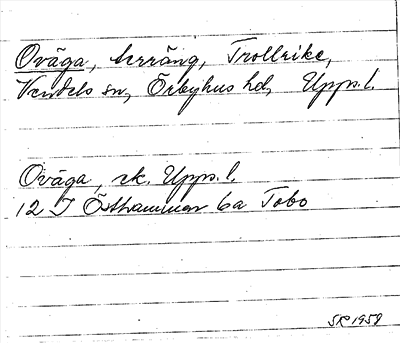 Oväga, terräng, Trollrike,
Vendels sn, Örbyhus hd, Upps. l.
Oväga, sk. Upps. l.
12 I Östhammar 6a Tobo
SR 1958